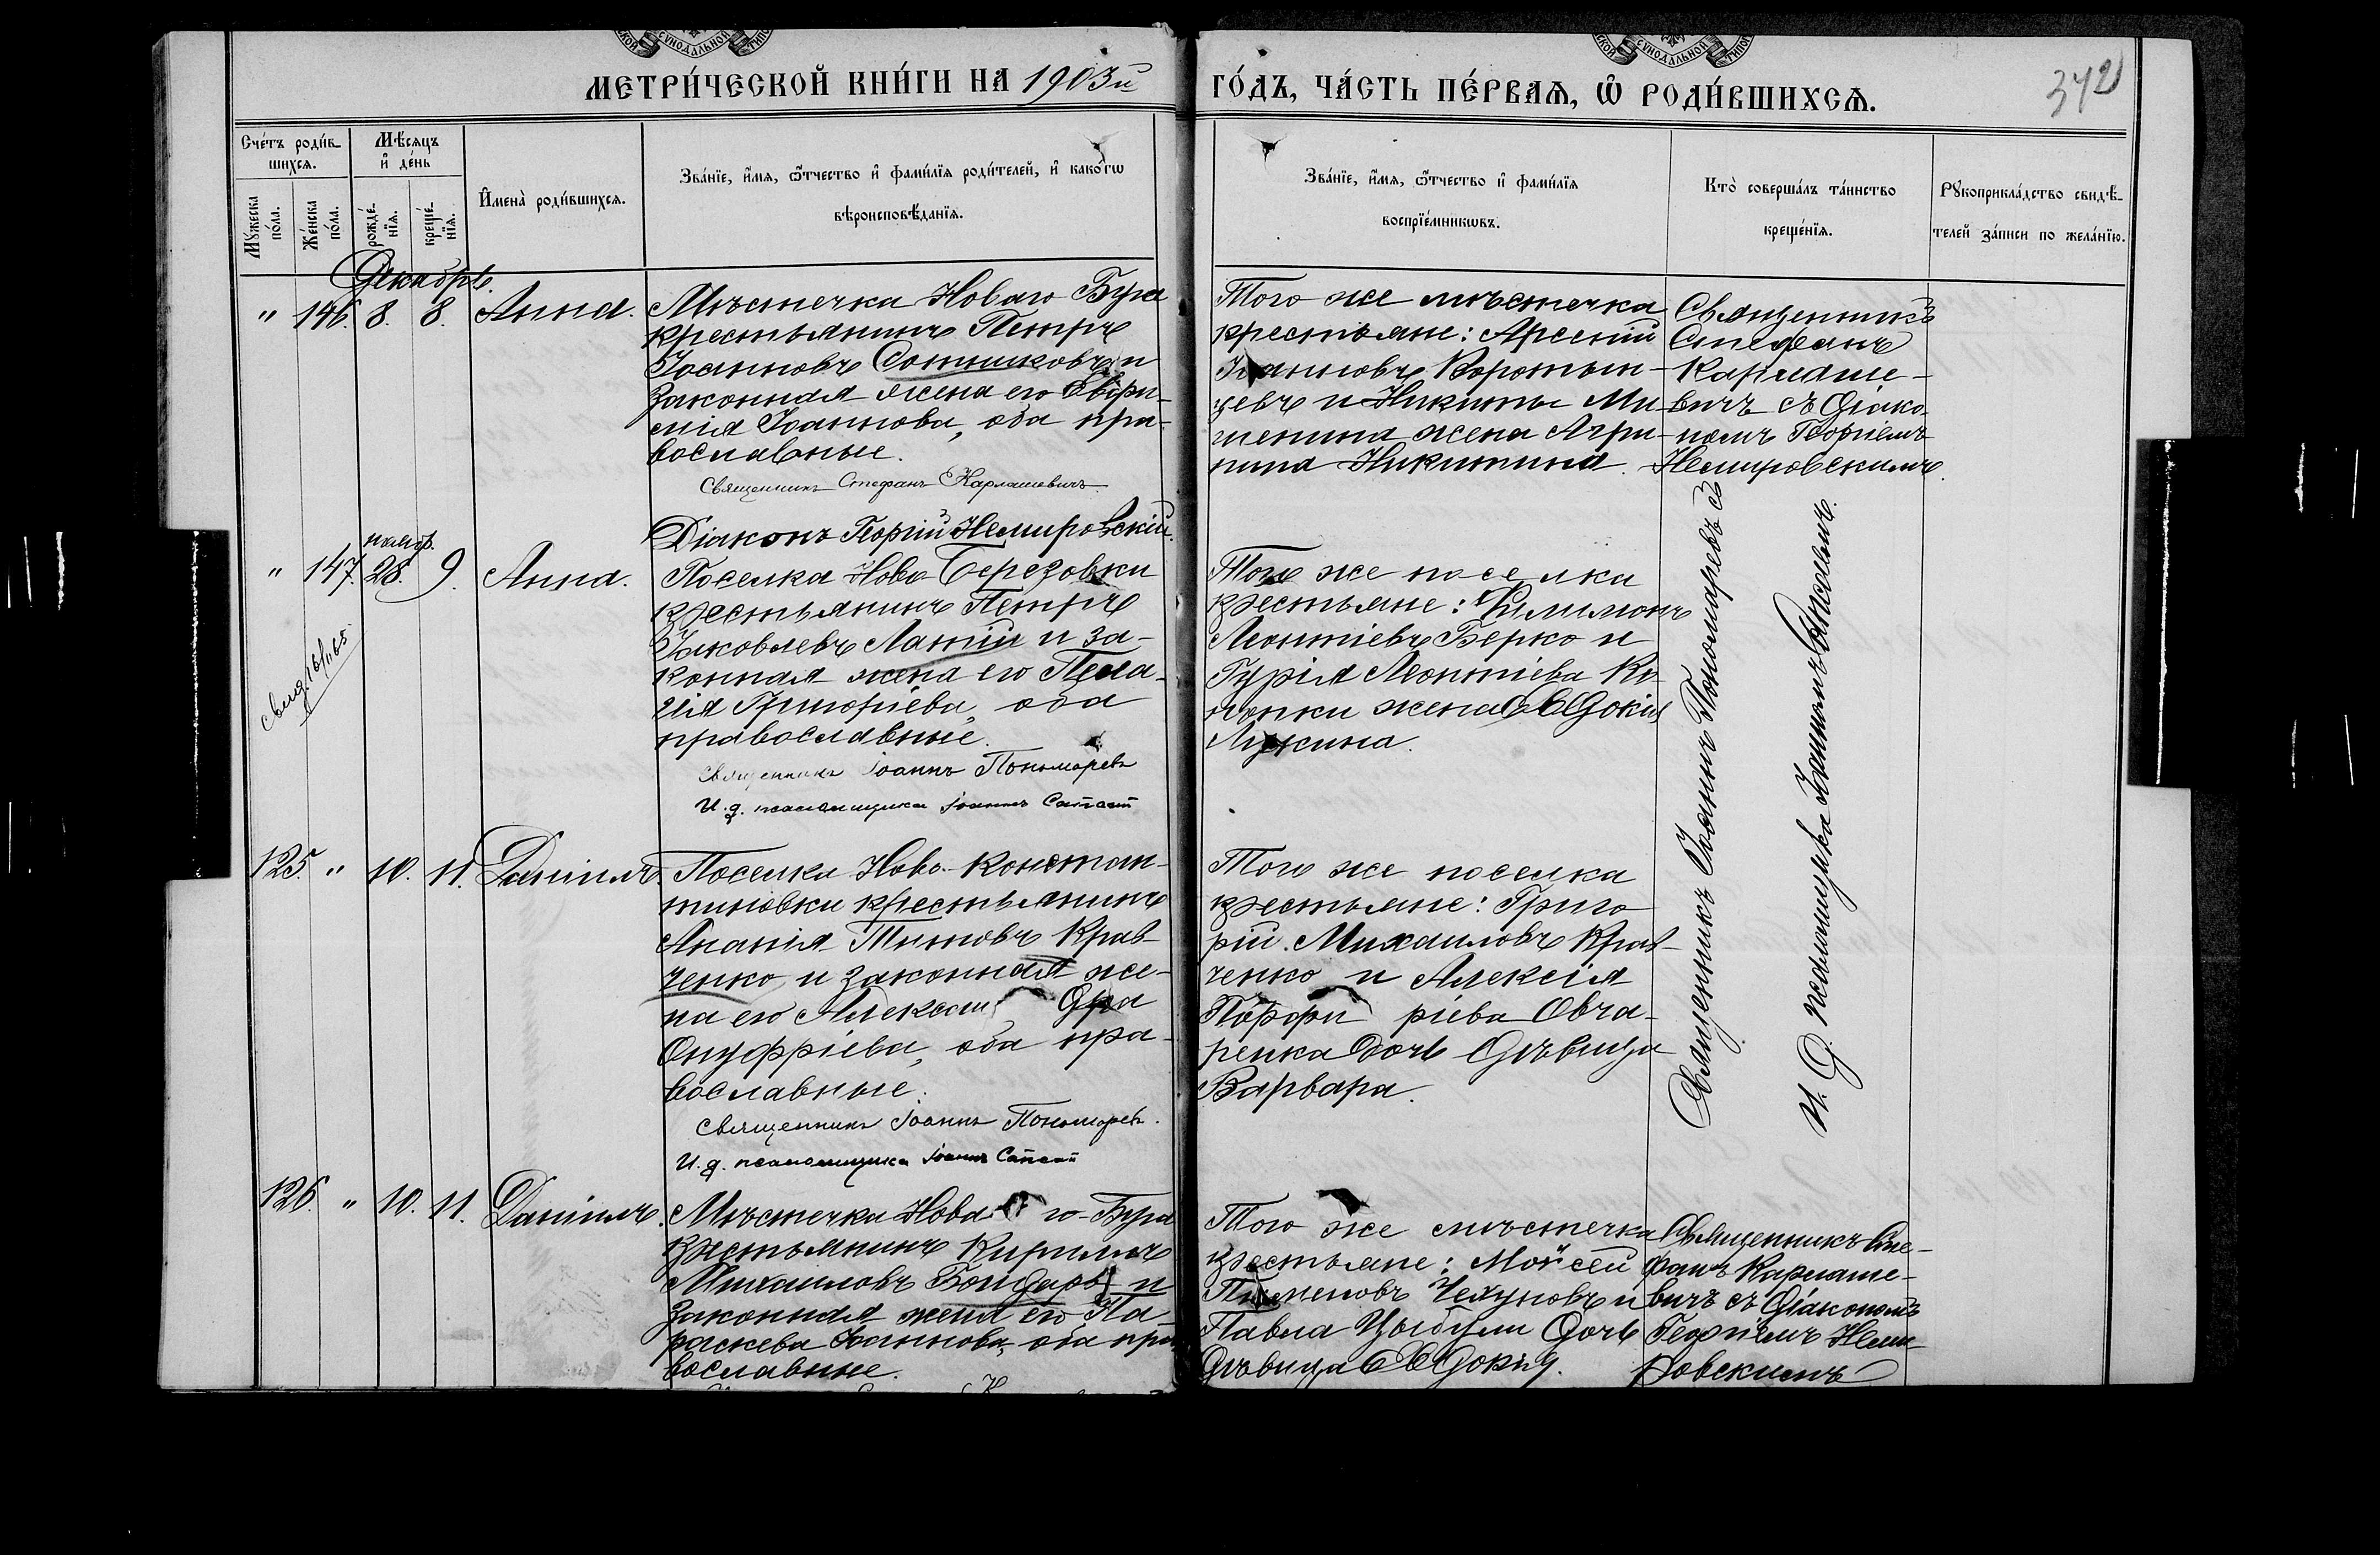 МЕТРИ́ЧЕСКОЙ КНИ́ГИ НА 1903й
ГО́ДЪ, ЧА́СТЬ ПЕ́РВАѦ, Ѡ҆ РОДИ́ВШИХСѦ.
342
Сче́тъ роди́в-
шихсѧ.
Мѣ́сяцъ
и҆ де́нь
Мꙋ́жеска
по́ла.
Же́нска
по́ла.
рожде́-
нїѧ.
креще́-
нїѧ.
И҆мена̀ роди́вшихсѧ.
Зва́нїе, и҆́мѧ, ѻ҆́тчество и҆ фами́лїѧ роди́телей, и҆ како́гѡ
вѣроисповѣ́данїѧ.
Зва́нїе, и҆́мѧ, ѻ҆́тчество и҆ фами́лїѧ
воспрїе́мникѡвъ.
Кто̀ соверша́лъ та́инство
креще́нїѧ.
Рꙋкоприкла́дство свидѣ́-
телей за́писи по жела́нїю.
Декабрь.
" 146. 8. 8. Анна.
Мѣстечка Новаго Буга
крестьянинъ Петръ
Іоанновъ Сотниковъ и
законная жена его Евфи-
мія Іоаннова, оба пра-
вославные.
Священникъ Стефанъ Карлашевичъ
Діаконъ Георгій Немировскій.
Того же мѣстечка
крестьяне: Арсеній
Іоанновъ Коротын-
цевъ и Никиты Ми-
шенина жена Агри-
пина Никитина.
Священникъ
Стефанъ
Карлаше-
вичъ съ діако-
номъ Георгіемъ
Немировскимъ.
ноябр.
" 147. 28. 9. Анна.
Поселка Ново-Березовки
крестьянинъ Петръ
Іаковлевъ Латій и за-
конная жена его Пела-
гія Григоріева, оба
православные.
Священникъ Іоаннъ Пономаревъ
И. д. псаломщика Іоаннъ
Того же поселка
крестьяне: Филимонъ
Леонтіевъ Берко и
Гурія Леонтіева Ко-
нопки жена Евдокія
Лукина.
Священникъ Іоаннъ Пономаревъ съ
И. д. псаломщика Іоанномъ
125. " 10. 11. Даніилъ.
Поселка Ново-Констан-
тиновки крестьянинъ
Ананія Титовъ Крав-
ченко и законная же-
на его Алексан дра
Онуфріева, оба пра-
вославные.
Священникъ Іоаннъ Пономаревъ.
И. д. псаломщика Іоаннъ
Того же поселка
крестьяне: Григо-
рій Михаиловъ Крав-
ченко и Алексія
Порфи ріева Овча-
ренка дочь дѣвица
Варвара.
126. " 10. 11. Даніилъ.
Мѣстечка Нова го-Буга
крестьянинъ Кириллъ
Михаиловъ Бондарь и
законная жена его Па-
раскева Іоаннова, оба пра-
вославные.
Того же мѣстечка
крестьяне: Моѵсей
Пименовъ Чехуновъ и
Павла Цыбули дочь
дѣвица Евдокія.
Священникъ Сте-
фанъ Карлаше-
вичъ съ діакономъ
Георгіемъ Неми-
ровскимъ